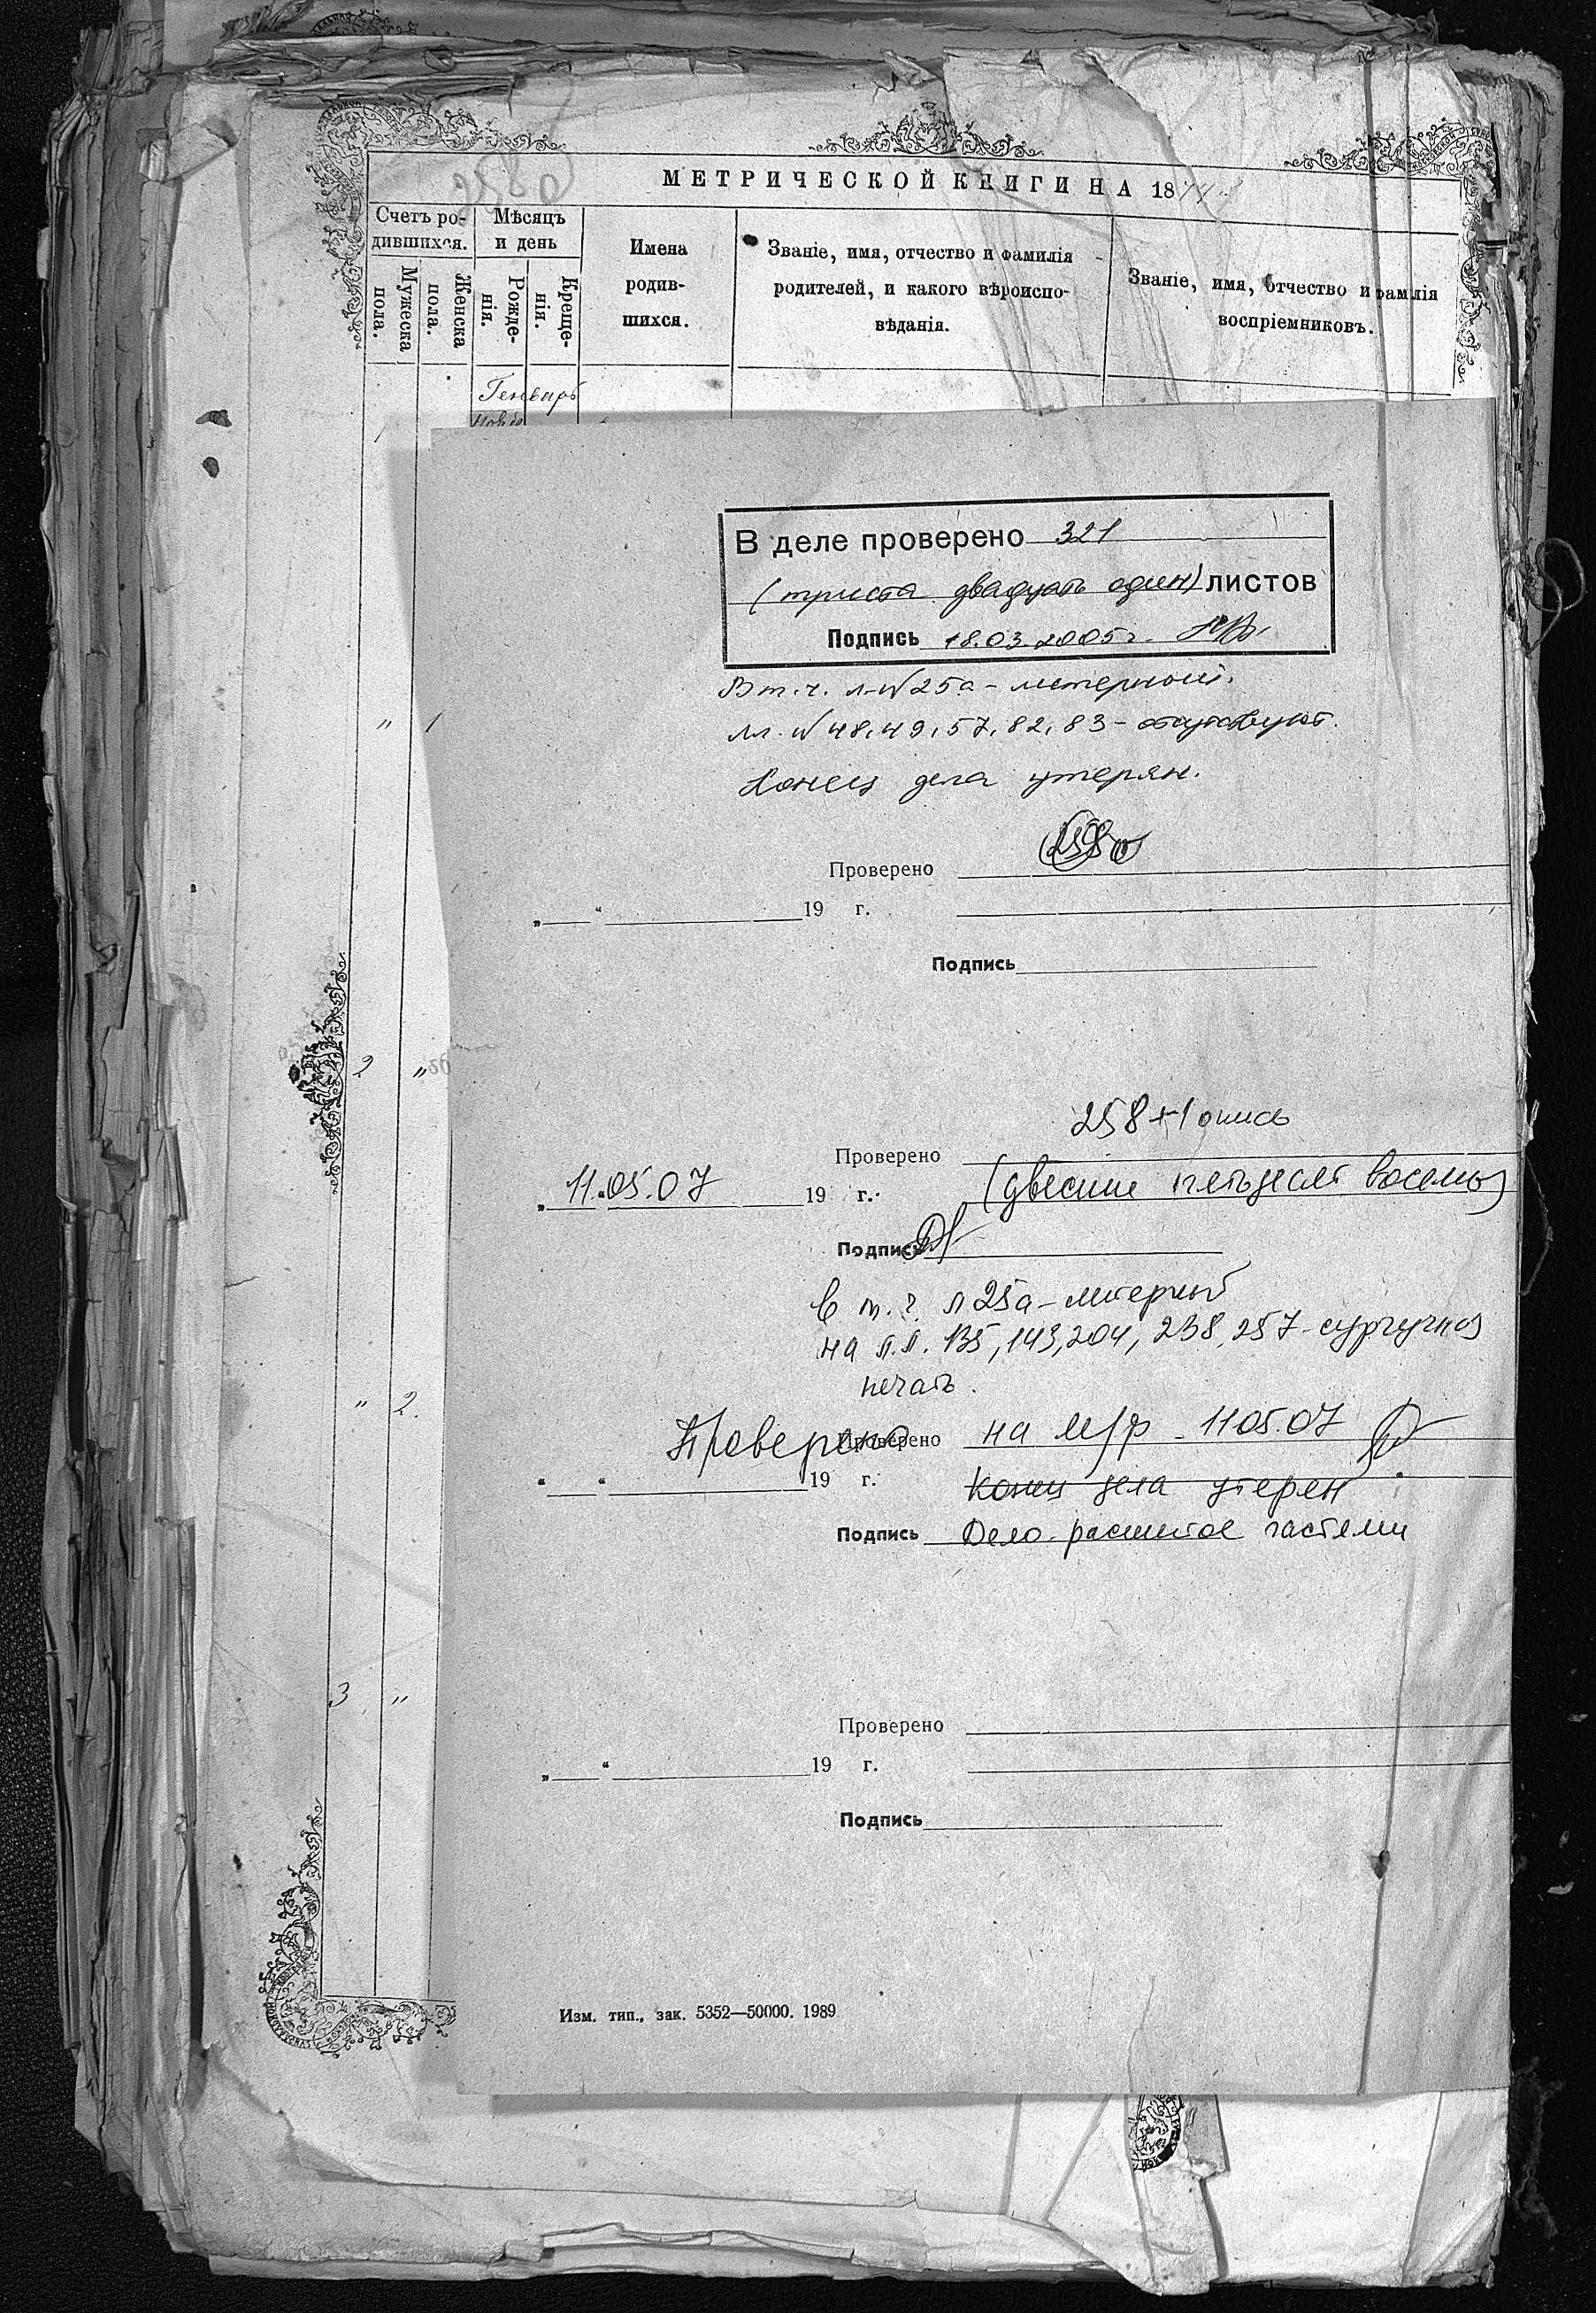 МЕТРИЧЕСКОЙ КНИГИ НА 187
Счетъ ро-
дившихся.
Мѣсяцъ
и день
Мужеска
пола.
Женска
пола.
Рожде-
нія.
Креще-
нія.
Имена
родив-
шихся.
Званіе, имя, отчество и фамилія
родителей, и какого вѣроиспо-
вѣданія.
Званіе, имя, отчество и фамилія
воспріемниковъ.
Генварь
В деле проверено 321
(триста двадцать один) листов
Подпись 18.03.2005г.
В т.ч. л. №25а - литерный.
Лл. №48, 49, 57, 82, 83 - отсутствуют.
Конец дела утерян.
" 1
Проверено
„ “ 19 г.
Подпись
2 "
258 + 1 опись
Проверено
„ 11.05.07 19 г. (двести пятьдесят восемь)
Подпись
в т.ч. л 25а - литерный
на л.л. 135, 143, 204, 238, 257 - сургучная
печать.
" 2.
Проверено Проверено на м/ф - 11 05.07
“ “ 19 г. Конец дела утерян
Подпись Дело расшитое частями
3 "
Проверено
„ “ 19 г.
Подпись
Изм. тип., зак. 5352—50000. 1989